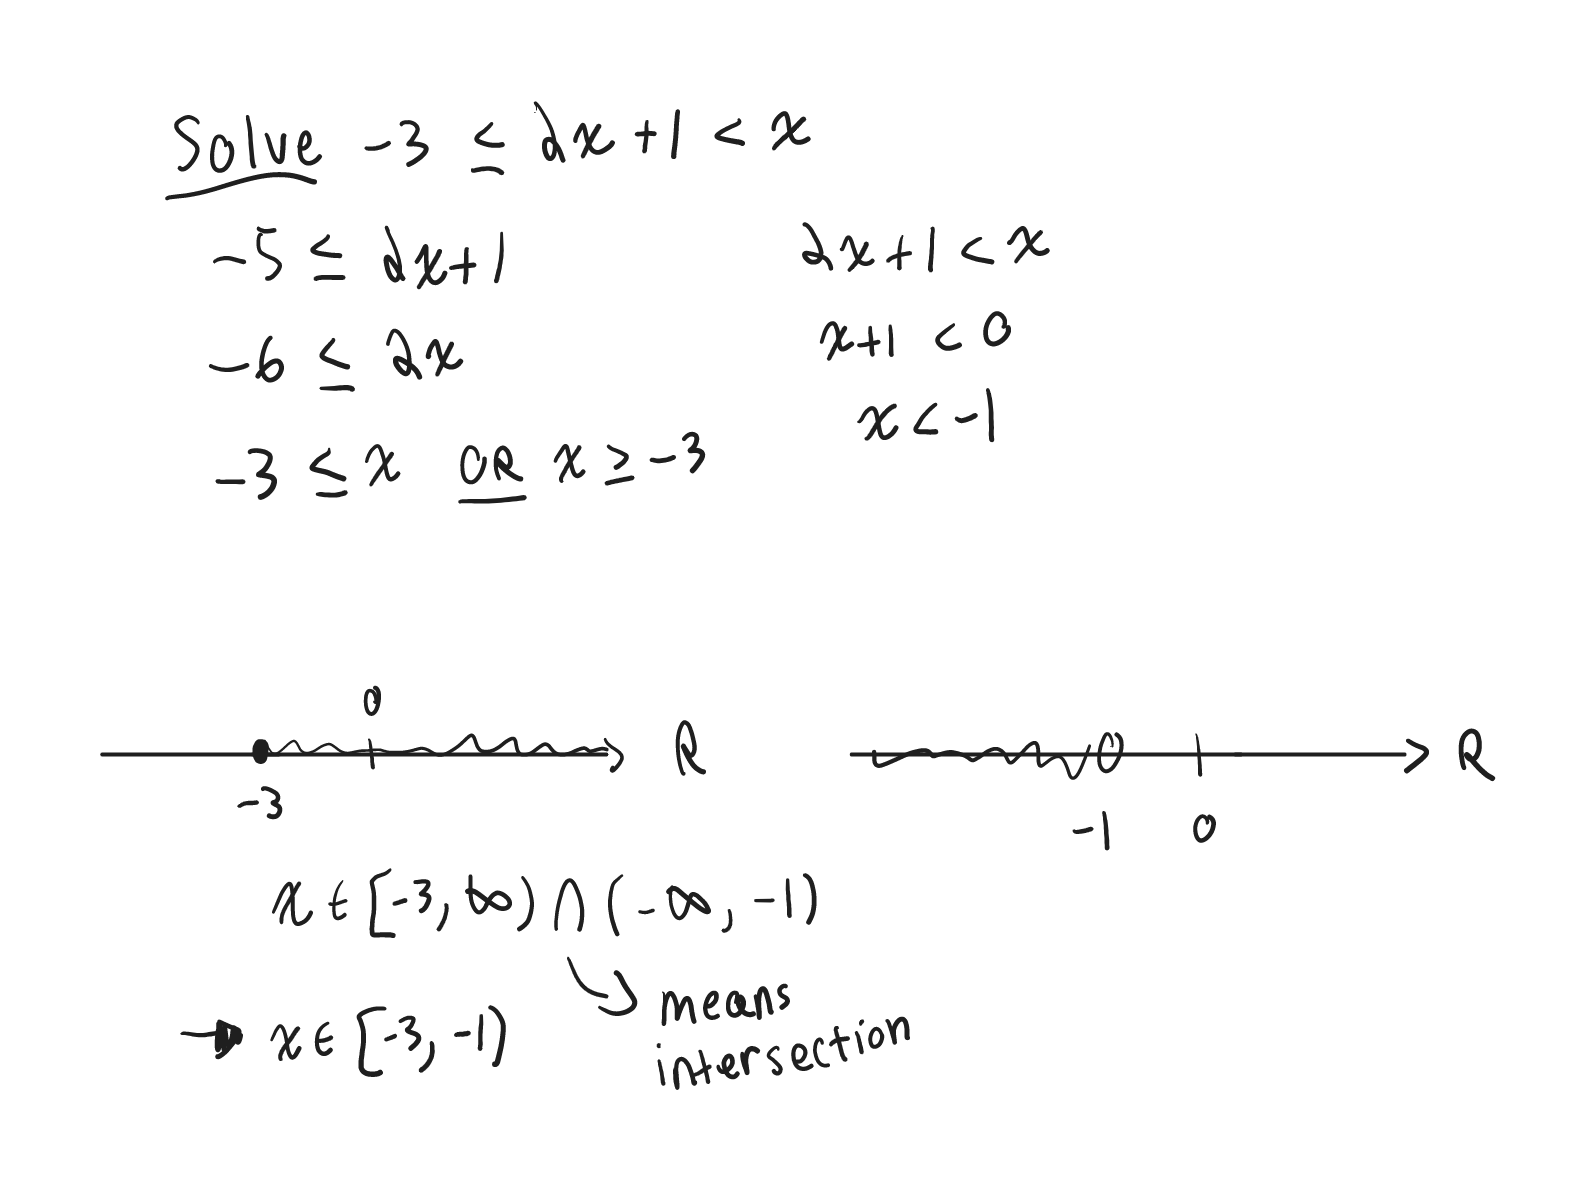 Solve -3 ≤ 2x+1 < x
-5 ≤ 2x+1
-6 ≤ 2x
-3 ≤ x OR x ≥ -3
2x+1 < x
x+1 < 0
x < -1
0
R
-3
R
-1 0
x ∈ [-3, ∞) ∩ (-∞, -1)
means
intersection
→ x ∈ [-3, -1)